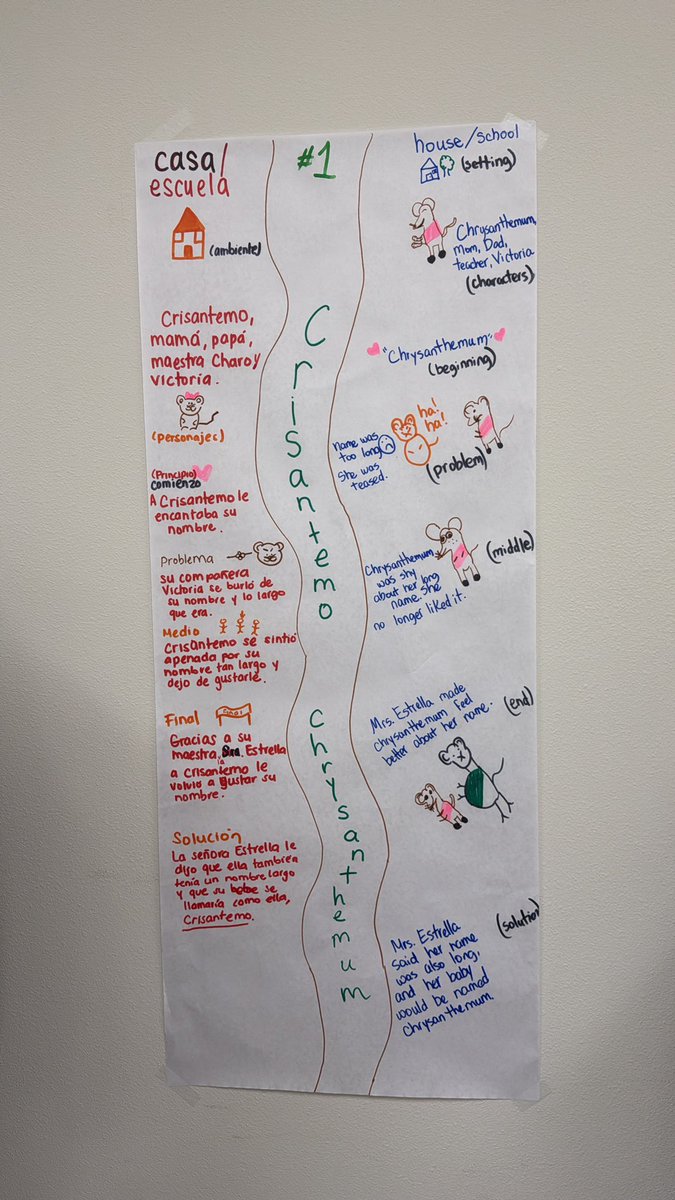 casa/
escuela
(ambiente)
Crisantemo,
mamá, papá,
maestra Charo y
Victoria.
(personajec)
(Principio)
comienzo
A Crisantemo le
encantaba su
nombre.
Problema
su compañera
Victoria se burló de
su nombre y lo largo
que era.
Medio
Crisantemo se sintió
apenada por su
nombre tan largo y
dejo de gustarle.
Final
Gracias a su
maestra, Sra. Estrella
a Crisantemo le
volvió a gustar su
nombre.
Solución
La señora Estrella le
dijo que ella también
tenía un nombre largo
y que su bebe se
llamaría como ella,
Crisantemo.
#1
Crisantemo
Chrysanthemum
house/school
(setting)
Chrysanthemum,
mom, Dad,
teacher, Victoria
(characters)
"Chrysanthemum"
(beginning)
name was
too long
She was
teased.
ha!
ha!
(problem)
Chrysanthemum
was shy
about her long
name. She
no longer liked it.
(middle)
Mrs. Estrella made
chrysanthemum feel
better about her name.
(end)
Mrs. Estrella
said her name
was also long,
and her baby
would be named
chrysanthemum.
(solution)